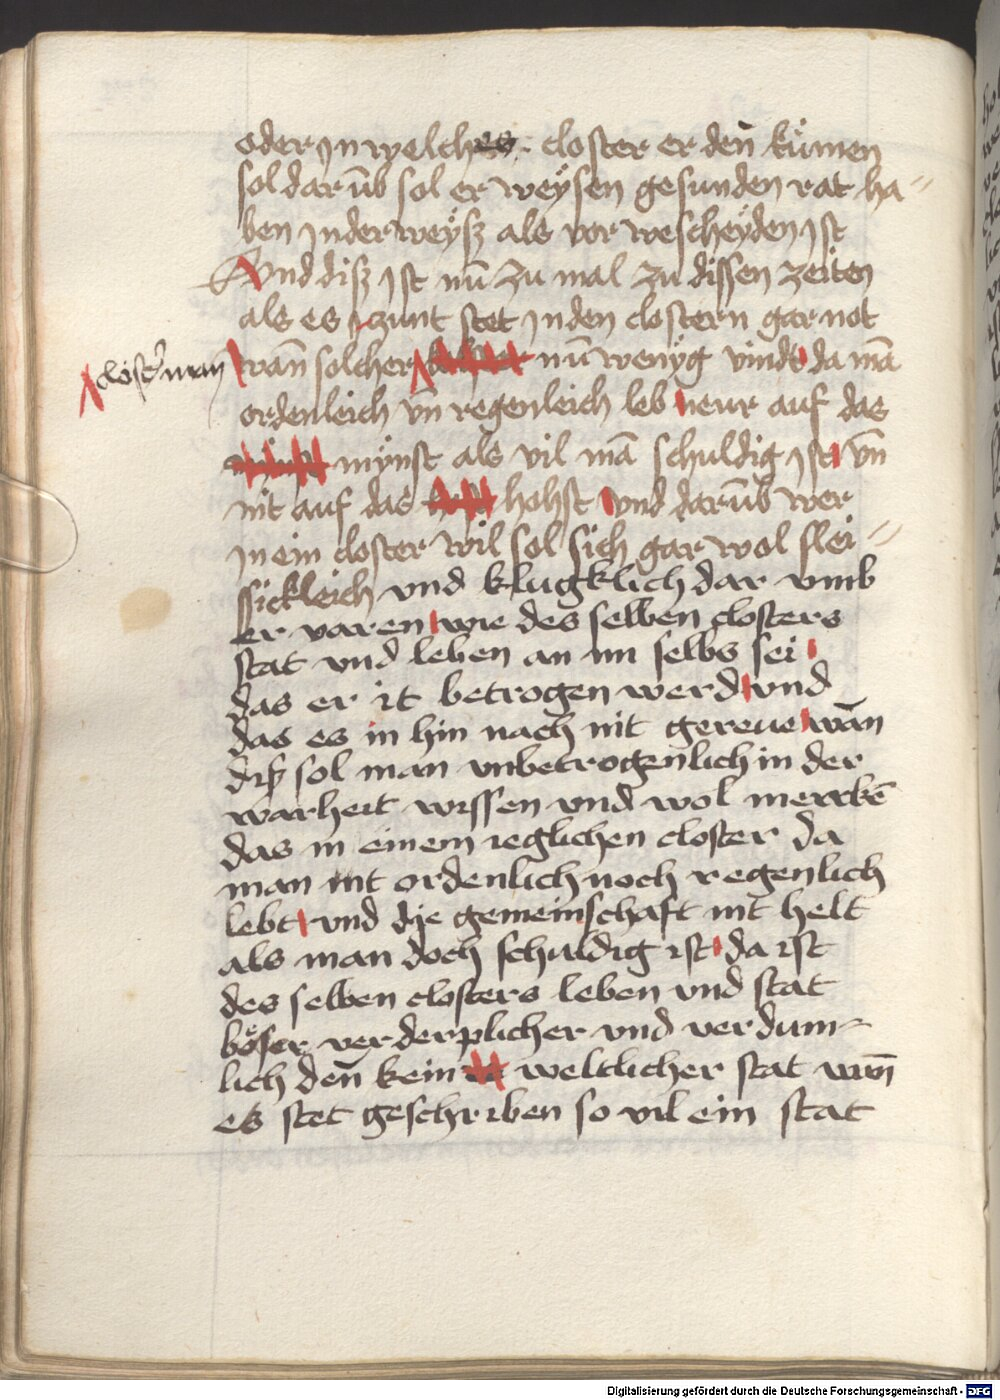 oder jn welches closter er deñ kümen
sol darūb sol er weÿsen gesunden rat ha=
ben jn der weÿsz als vor wescheÿden jst
Vnd disz jst nū zu mal zu dissen zeiten
als es jczunt stet jn den clostern gar not
clost̄man
wañ solcher nū wenÿg vindt da mā
ordenleich vñ regenleich leb neur auf das
mÿnst als vil mā schuldig jst vñ
nit auf das hohst vnd darūb wer
jn ein closter wil sol sich gar wol flei=
ssickleich vnd klugklich dar vmb
er varen wie des selben closters
stat vnd leben an im selbs sei
das er it betrogen werd vnd
das es in hin nach nit gereue wan̄
diß sol man vnbetrogenlich in der
warheit wissen vnd wol merckē
das in einem ieglichen closter da
man nit ordenlich noch regenlich
lebt vnd dÿe gemeinschaft nit helt
als man doch schuldig ist da ist
des selben closters leben vnd stat
böser verderplicher vnd verdum=
lich den̄ kein weltlicher stat wan̄
eß stet geschriben so vil ein stat
Digitalisierung gefördert durch die Deutsche Forschungsgemeinschaft - DFG